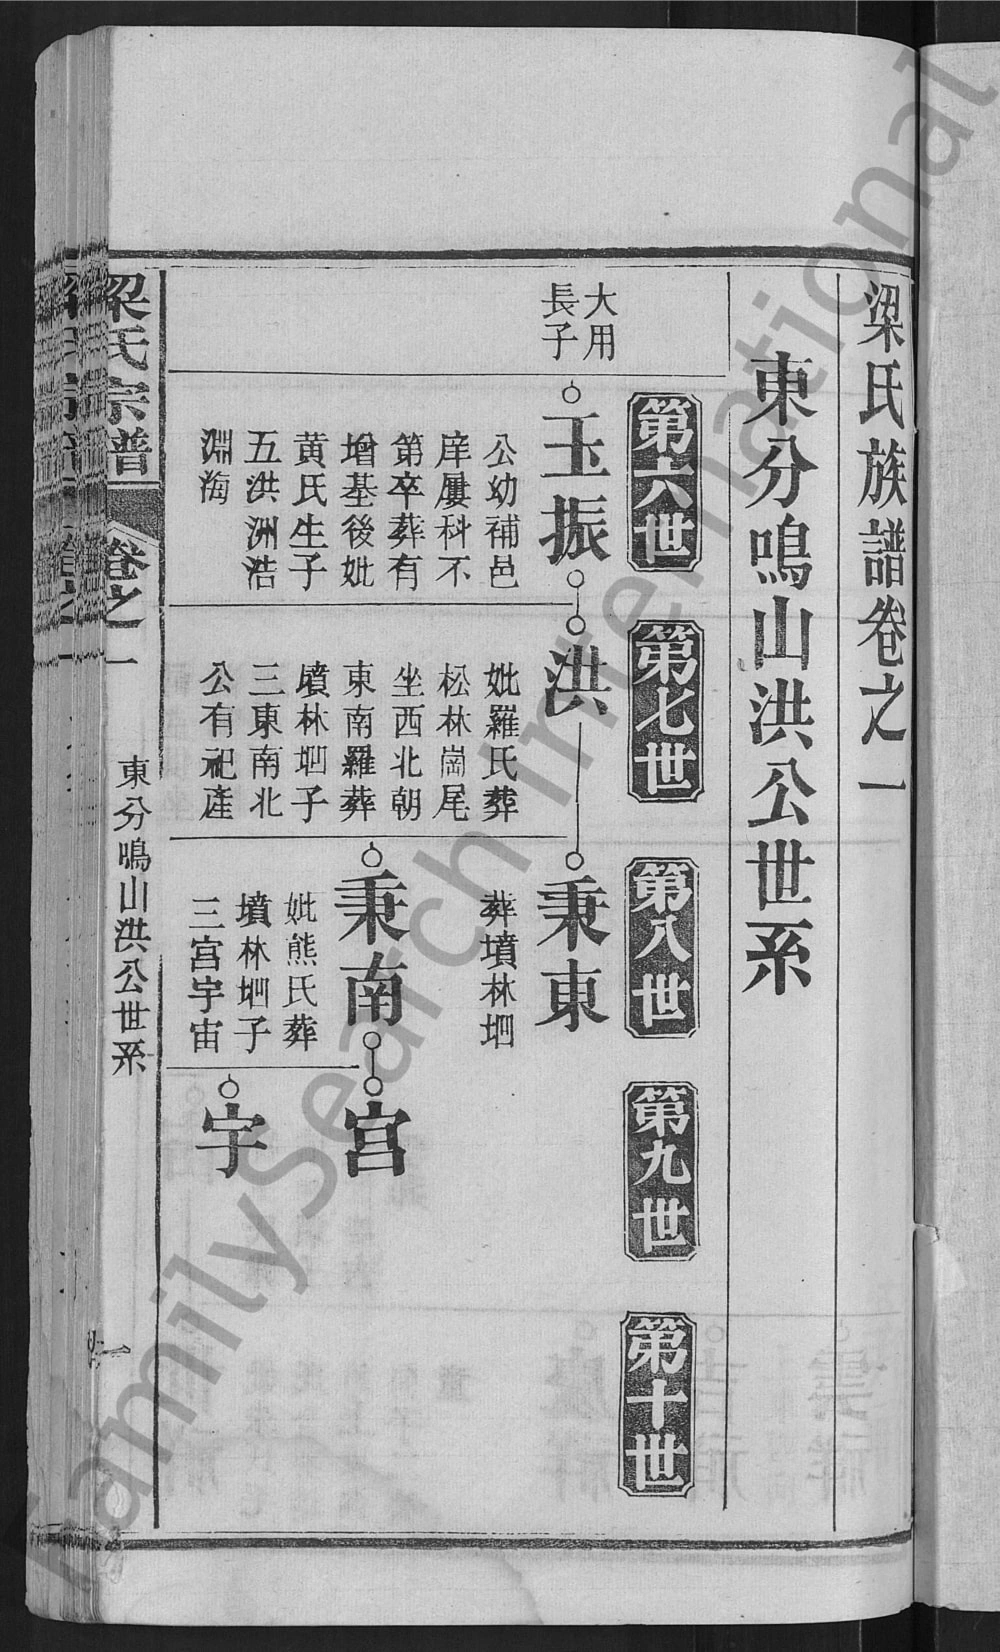 梁氏族譜卷之一
東分鳴山洪公世系
第六世
第七世
第八世
第九世
第十世
大用
長子
玉振
公幼補邑
庠屢科不
第卒葬有
增基後妣
黄氏生子
五洪洲浩
淵海
洪
妣羅氏葬
松林崗尾
坐西北朝
東南羅葬
墳林垇子
三東南北
公有祀產
秉東
葬墳林垇
秉南
妣熊氏葬
墳林垇子
三宮宇宙
宮
宇
梁氏宗譜
卷之一
東分鳴山洪公世系
一
FamilySearch International